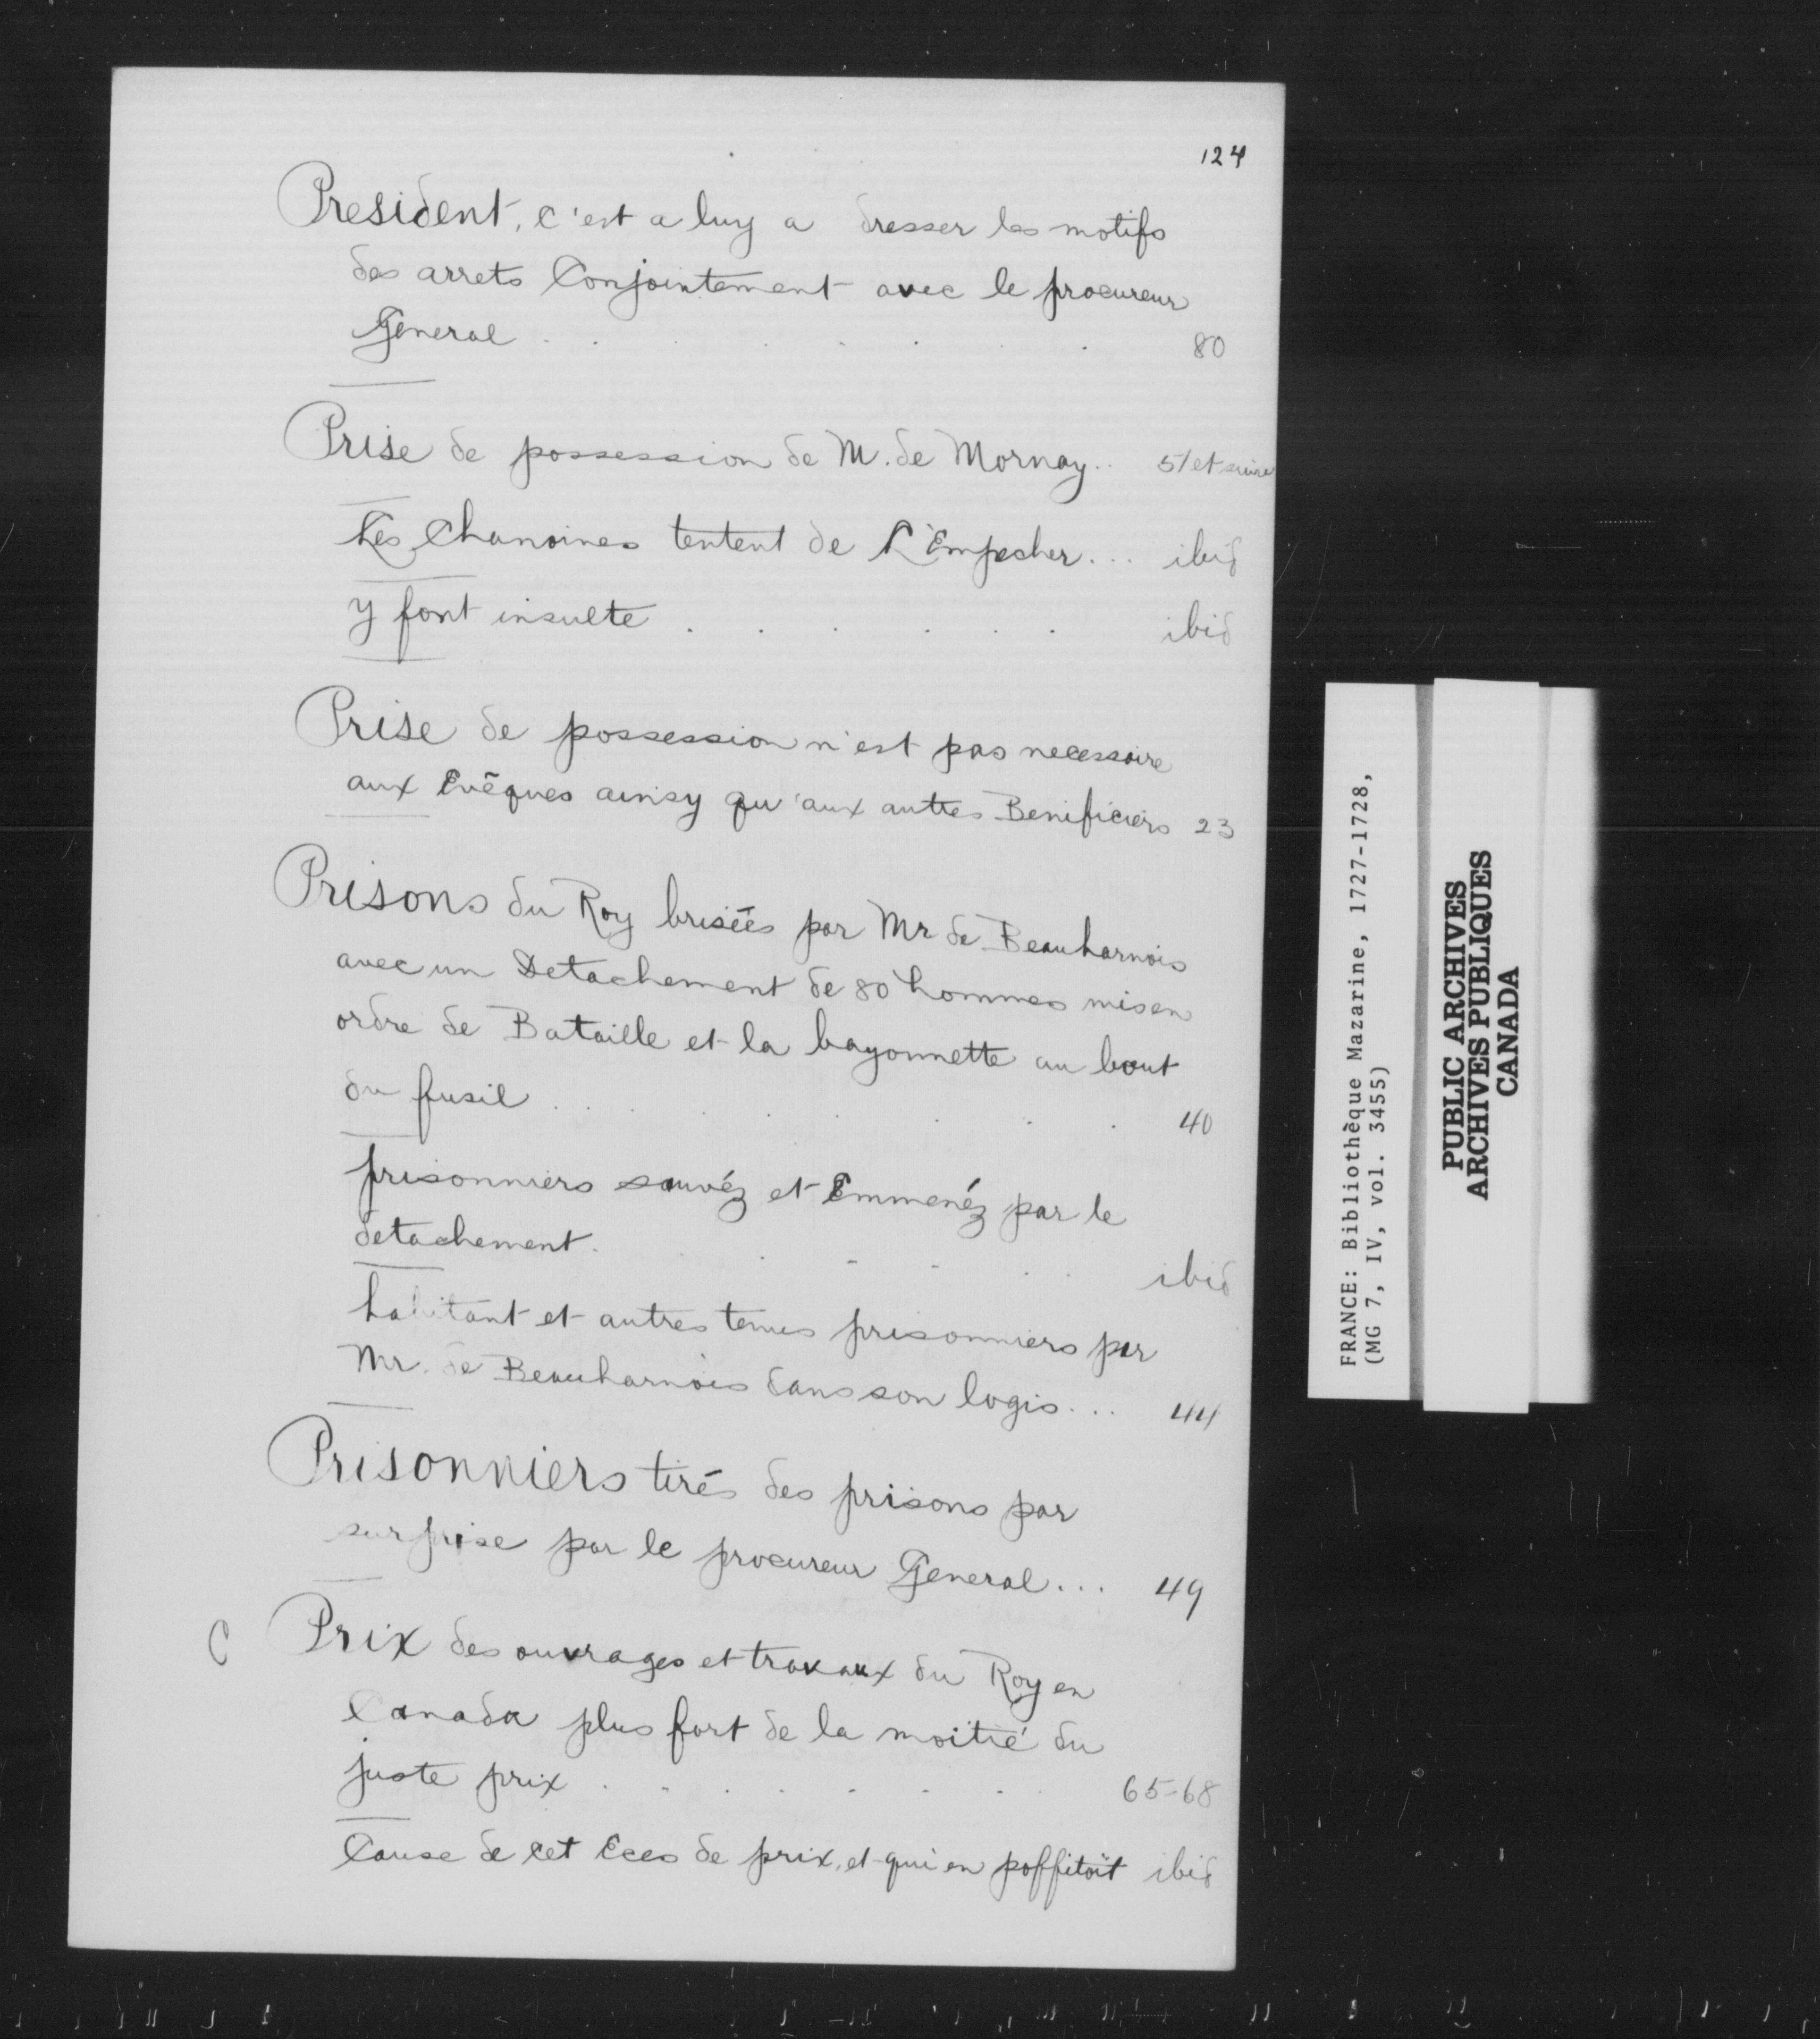 124
President, c'est a luy a dresser les motifs
des arrets Conjointement avec le procureur
General . . . . . . . 80
Prise de possession de M. de Mornay.. 51 et suiv
Les Chanoines tentent de L'Empecher... ibid
y font insulte . . . . . . ibid
Prise de possession n'est pas necessaire
aux Evêques ainsy qu'aux autres Benificiers 23
Prisons du Roy brisées par Mr de Beauharnois
avec un Detachement de 80 hommes mis en
ordre de Bataille et la bayonnette au bout
du fusil . . . . . . . 40
prisonniers sauvéz et Emmenéz par le
detachement . . . . . . ibid
habitant et autres tenus prisonniers par
Mr. de Beauharnois dans son logis... 44
Prisonniers tirés des prisons par
surprise par le procureur General... 49
C Prix des ouvrages et travaux du Roy en
Canada plus fort de la moitié du
juste prix . . . . . . . 65-68
Cause de cet Eces de prix, et qui en poffitoit ibid
FRANCE: Bibliothèque Mazarine, 1727-1728,
(MG 7, IV, vol. 3455)
PUBLIC ARCHIVES
ARCHIVES PUBLIQUES
CANADA